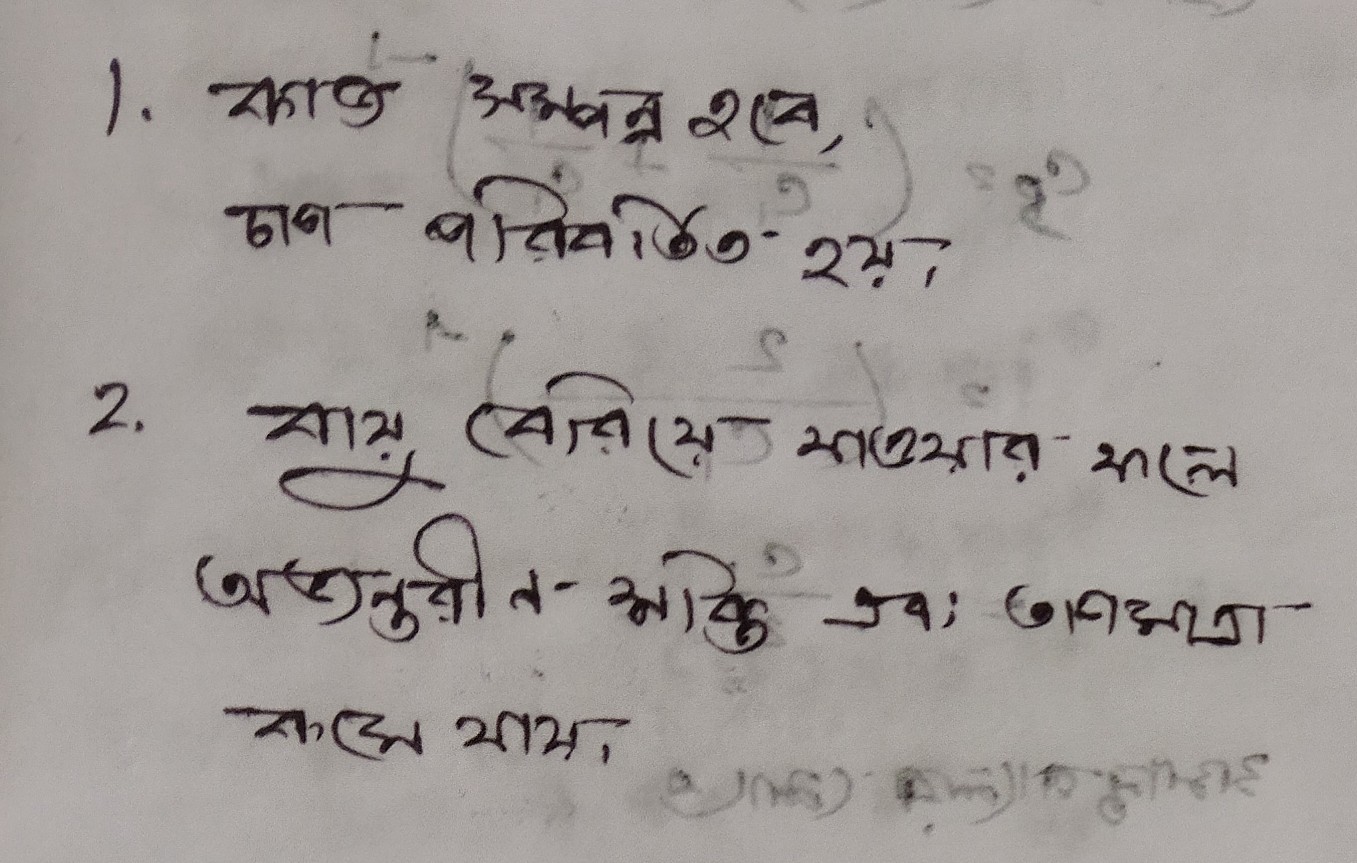 1. কাজ সম্পন্ন হবে,
চাপ পরিবর্তিত হয়।
2. বায়ু বেরিয়ে যাওয়ার ফলে
অভ্যন্তরীন শক্তি এবং তাপমাত্রা
কমে যায়।